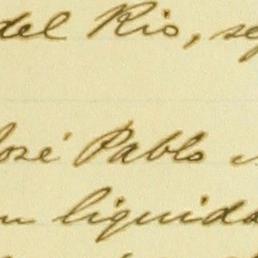 del Rio, se
José Pablo
liquida